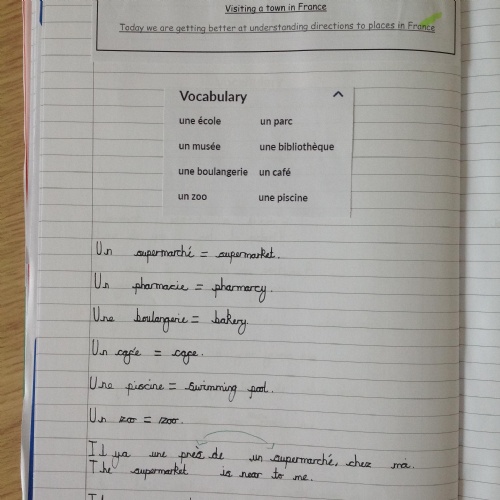 Visiting a town in France
Today we are getting better at understanding directions to places in France
Vocabulary
une école un parc
un musée une bibliothèque
une boulangerie un café
un zoo une piscine
Un supermarché = supermarket.
Un pharmacie = pharmarcy.
Une boulangerie = bakery.
Un café = cafe.
Une piscine = swimming pool.
Un zoo = zoo.
Il ya une près de un supermarché, chez moi.
The supermarket is near to me.